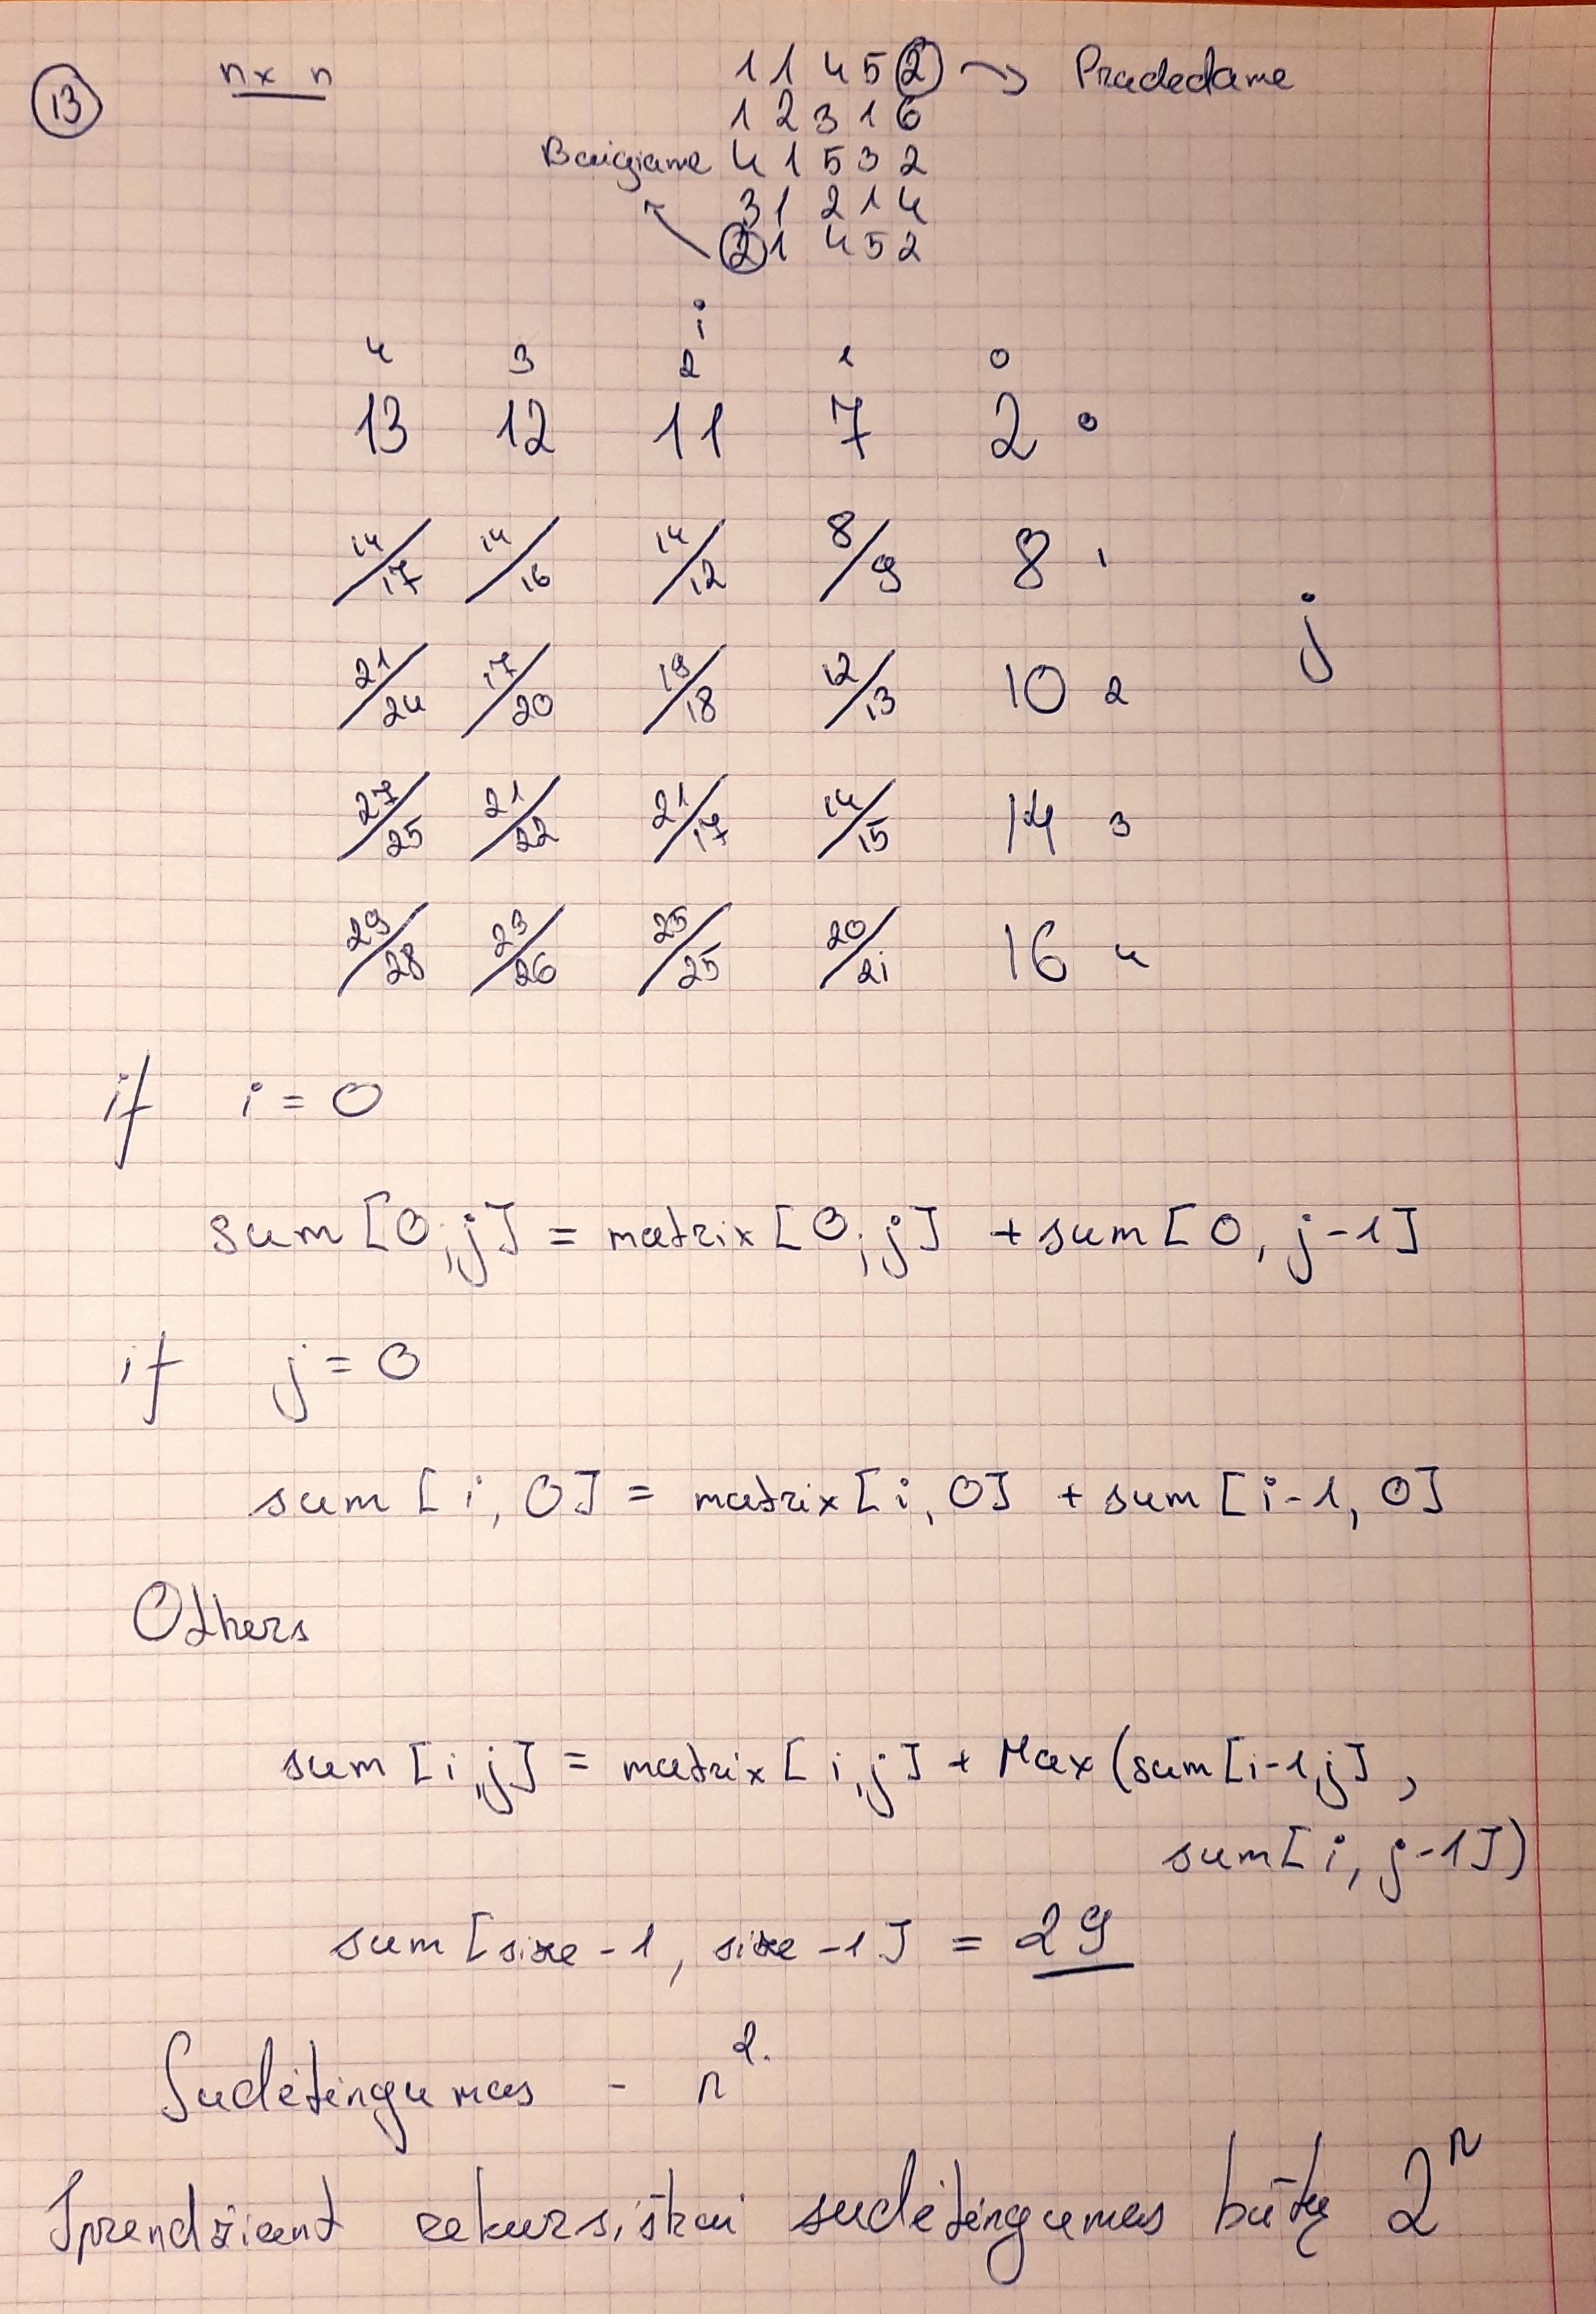 13 n x n 1 1 4 5 2 → Pradedame
1 2 3 1 6
Baigiame 4 1 5 3 2
3 1 2 1 4
2 1 4 5 2
i
4 3 2 1 0
13 12 11 7 2 0
14/17 14/16 14/12 8/9 8 1
j
21/24 17/20 19/18 12/13 10 2
27/25 21/22 21/17 14/15 14 3
29/28 23/26 25/25 20/21 16 4
if i = 0
sum [0,j] = matrix [0,j] + sum [0, j-1]
if j = 0
sum [i, 0] = matrix [i, 0] + sum [i-1, 0]
Others
sum [i,j] = matrix [i,j] + Max (sum [i-1,j] ,
sum [i, j-1])
sum [size - 1, size - 1] = 29
Sudėtingumas - n².
Sprendžiant rekursiškai sudėtingumas būtų 2ⁿ